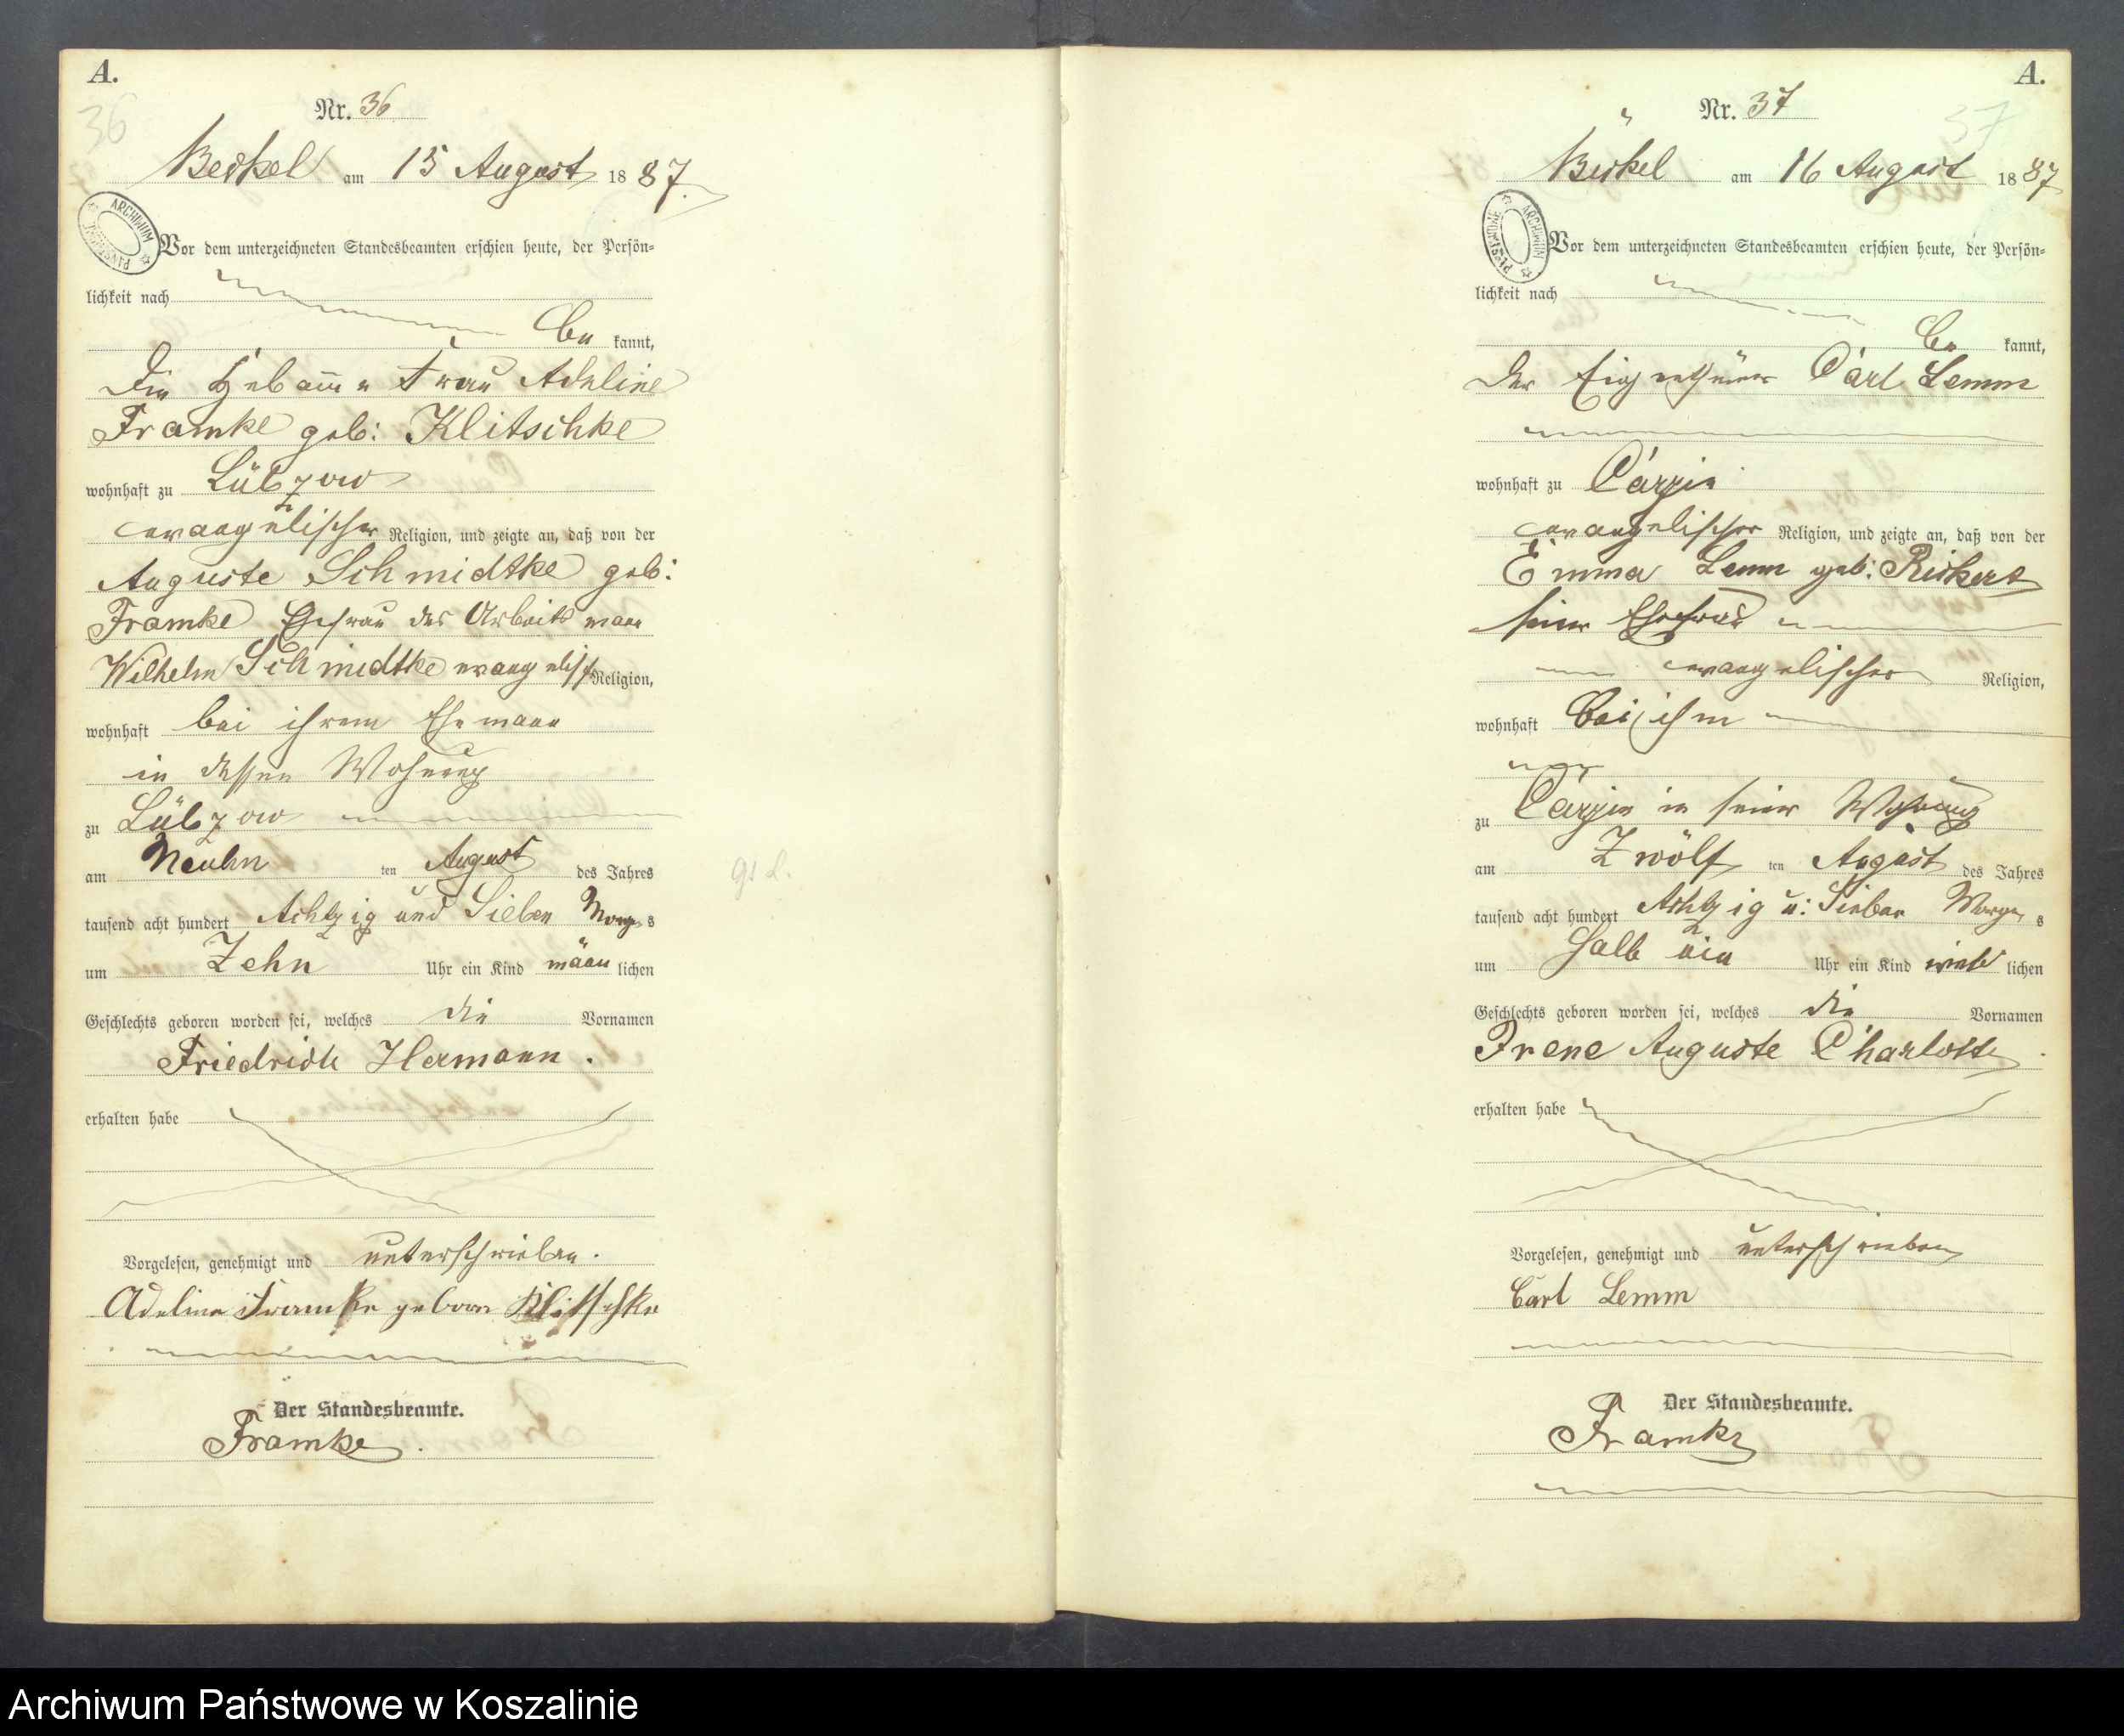 A.
36
Nr. 36
Beskel am 15 August 1887.
ARCHIWUM PAŃSTWOWE
Vor dem unterzeichneten Standesbeamten erschien heute, der Persön=
lichkeit nach
be kannt,
Die Hebamme Frau Adeline
Framke geb: Klitschke
wohnhaft zu Lübzow
evangelischer Religion, und zeigte an, daß von der
Auguste Schmidtke geb:
Framke Ehefrau des Arbeitsmann
Wilhelm Schmidtke evangelisch Religion,
wohnhaft bei ihrem Ehemann
in dessen Wohnung
zu Lübzow
am Neuhn ten August des Jahres
tausend acht hundert Achtzig und Sieben Morgens
um Zehn Uhr ein Kind männlichen
Geschlechts geboren worden sei, welches die Vornamen
Friedrich Hermann.
erhalten habe
Vorgelesen, genehmigt und unterschrieben.
Adeline Framke geborn Klitschke
Der Standesbeamte.
Framke.
A.
37
Nr. 37
am 16 August 1887
ARCHIWUM PAŃSTWOWE
Vor dem unterzeichneten Standesbeamten erschien heute, der Persön=
lichkeit nach
be kannt,
Der Eigenthümer Carl Lemm
wohnhaft zu Carzin
evangelischer Religion, und zeigte an, daß von der
Emma Lemm geb:
seiner Ehefrau
evangelischer Religion,
wohnhaft bei ihm
zu Carzin in seiner Wohnung
am Zwölf ten August des Jahres
tausend acht hundert Achtzig u: Sieben Morgens
um halb ein Uhr ein Kind weiblichen
Geschlechts geboren worden sei, welches die Vornamen
Irene Auguste Charlotte
erhalten habe
Vorgelesen, genehmigt und unterschrieben
Carl Lemm
Der Standesbeamte.
Framke
Archiwum Państwowe w Koszalinie